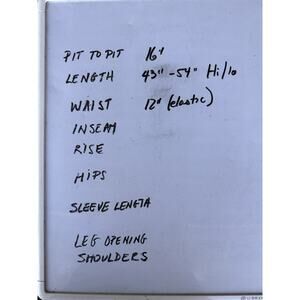 PIT TO PIT 16"
LENGTH 43" - 54" Hi/lo
WAIST 12" (elastic)
INSEAM
RISE
HIPS
SLEEVE LENGTH
LEG OPENING
SHOULDERS